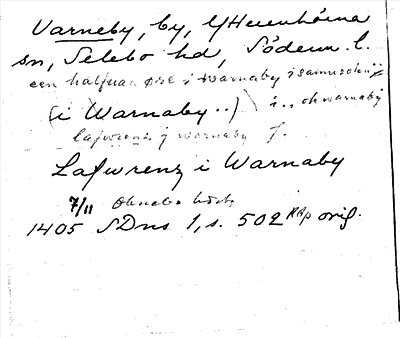 Varneby, by, Ytterenhörna
sn, Selebo hd, Söderm. l.
een halfuan øre i warnaby i samu
(i Warnaby ..) i .. ok warnaby
lafwrenz i warnaby f.
Lafwrenz i Warnaby
7/11
1405 SDns 1, s. 502 RAp orig.